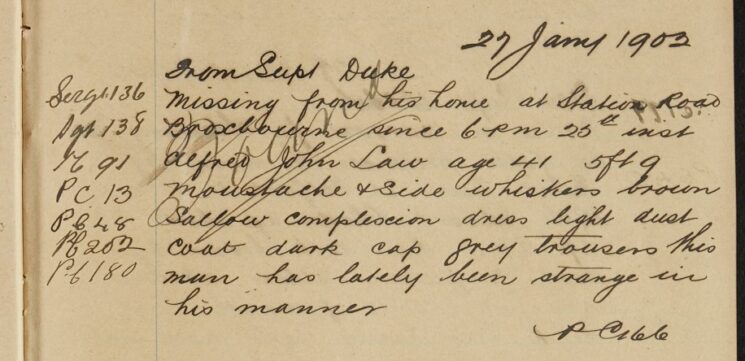 27 Jany 1902
From Supt Duke
Sergt 136 Missing from his home at Station Road
Sgt 138 Broxbourne since 6 PM 25th inst
91 Alfred John Law age 41 5ft 9
PC 13 Moustache & Side whiskers brown
PC 48 Sallow complexcion dress light dust
PC 202 Coat dark cap grey trousers this
PC 180 man has lately been strange in
his manner
PC 166
Found